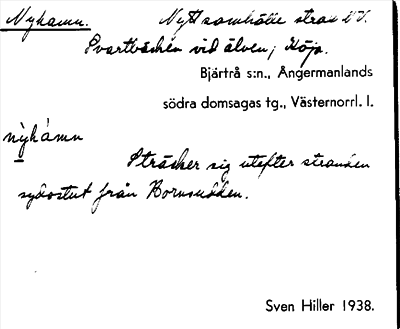 Nyhamn. Nytt samhälle strax NV.
Svartbäcken vid älven; Höja.
Bjärtrå s:n., Ångermanlands
södra domsagas tg., Västernorrl. l.
nỳhámn
Sträcker sig utefter stranden
sydostut från Kornsudden.
Sven Hiller 1938.